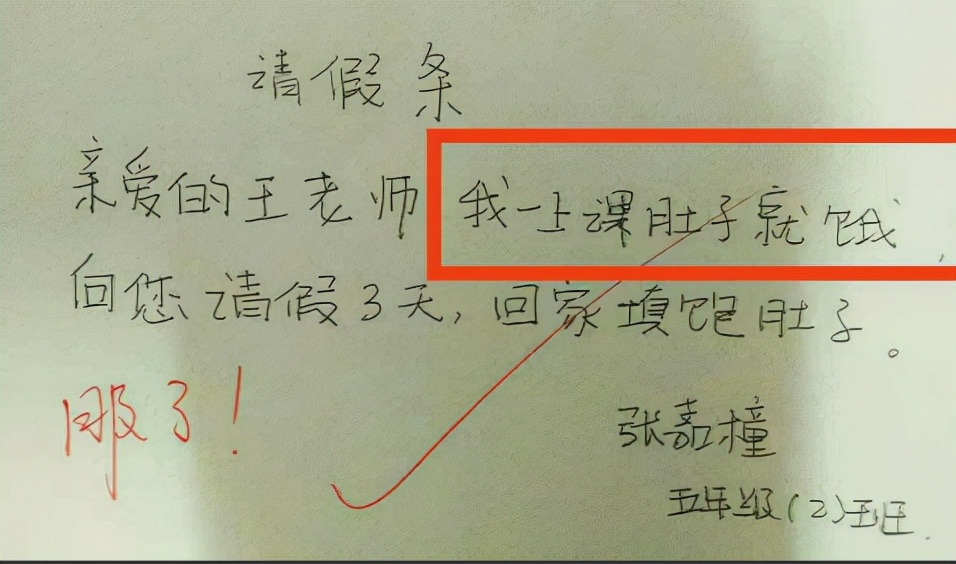 请假条
亲爱的王老师 我一上课肚子就饿,
向您请假3天,回家填饱肚子。
服了!
张嘉橦
五年级(2)班.